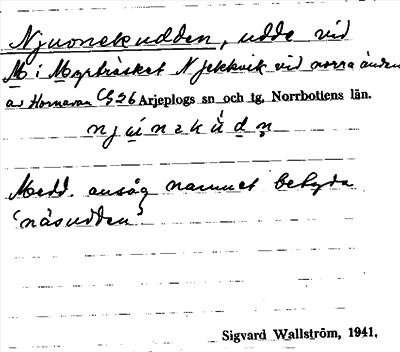 Njuonekudden, udde vid
M i Myrträsket N Jäkkvik vid norra änden
av Hornavan C 26 Arjeplogs sn och tg, Norrbottens län.
Medd. ansåg namnet betyda
'näsudden'.
Sigvard Wallström, 1941.